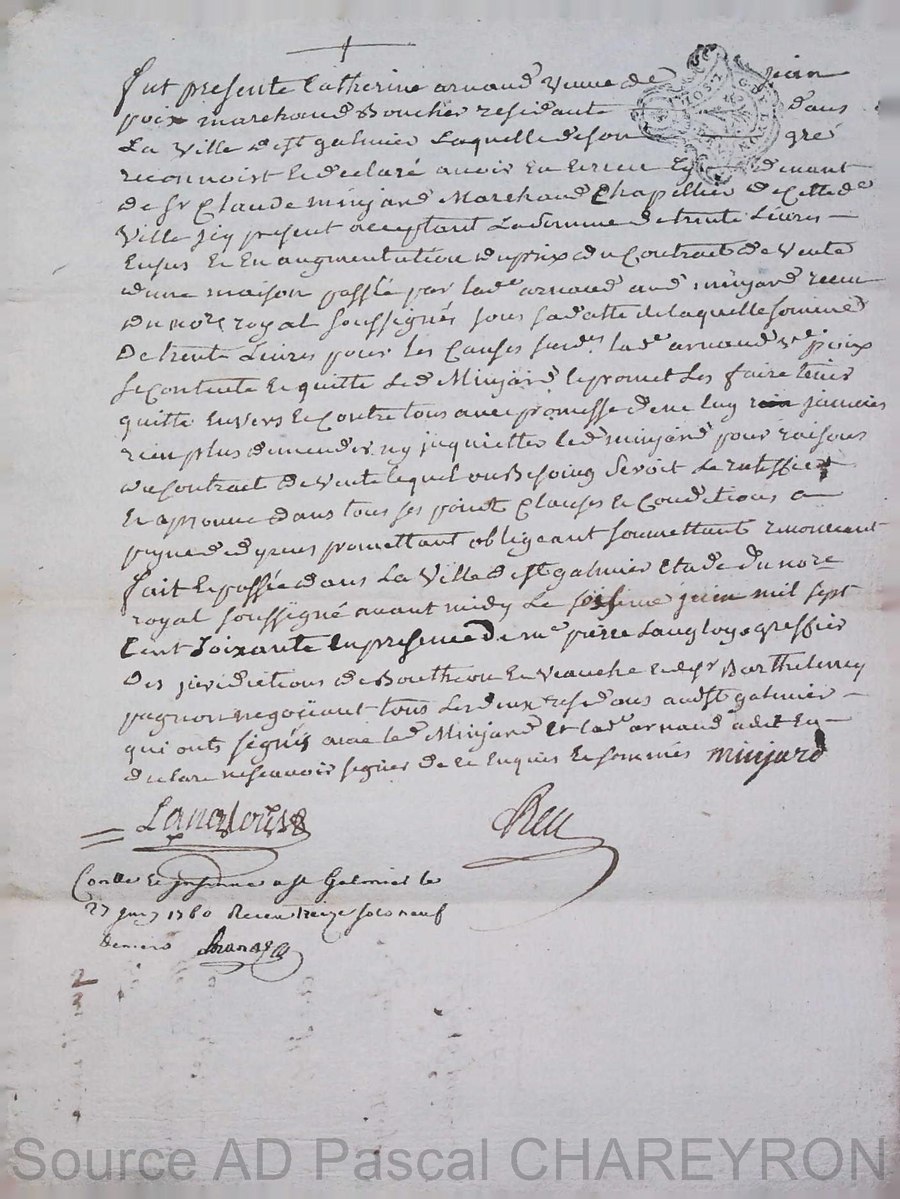 fut presente Catherine arnaud Veuve de Jean
poix marchand Boucher residante dans
La Ville de st galmier Laquelle de son gré
reconnoist et declaré avoir Eu et receu cy devant
de sr Claude minjard Marchand Chapellier de Cette de
Ville jcy present acceptant La somme de trente Livres
Ensus et En augmentation du prix du Contract de Vente
d'une maison passée par lade arnaud aud minjard receu
du nore royal soussigné sous sa datte de laquelle somme
De trente Livres pour les Causes susd. lade arnaud ve poix
se Contente Et quitte Led Minjard Et promet Les faire tenir
quitte Envers Et Contre tous avec promesse de ne luy jamais
rien plus demander ny jnquietter led minjard pour raison
du Contract de Vente lequel ou Besoing seroit Le ratiffie
Et aprouve dans tous ses points Clauses Et Conditions a
peyne de d promettant obligeant soumettant renonceant
fait Et passé dans La Ville de st galmier Etude du nore
royal soussigné avant midy Le juin mil sept
Cent soixante En presence de me pierre Langloys greffier
Des juridictions de Bouthéon Et Veauche et de sr Barthelemy
pagnon negoçiant tous Les deux residans audt st galmier
qui onts signés avec led Minjard Et lade arnaud a dit Et
declaré ne sçavoir signer de ce Enquis Et sommés minjard
Langlois
Reu
Conlle Et a st Galmier le
27 juin 1760 Receu treize sols neuf
deniers
2
3
Source AD Pascal CHAREYRON